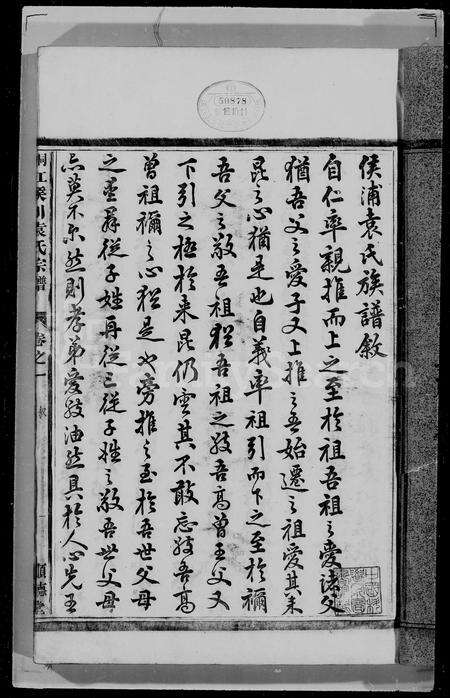 侯浦袁氏族譜敘
自仁率親推而上之至於祖吾祖之愛諸父
猶吾父之愛子又上推之吾始遷之祖愛其来
昆之心猶是也自義率祖引而下之至於禰
吾父之敬吾祖猶吾祖之敬吾高曾王父又
下引之極於来昆仍雲其不敢忘敬吾高
曾祖禰之心猶是也旁推之至於吾世父母
之愛羣從子姓再從三從子姓之敬吾世父母
亦莫不尔然則孝弟愛敬油然具於人心先王
桐江 川袁氏宗譜 卷之一
順德堂
50878